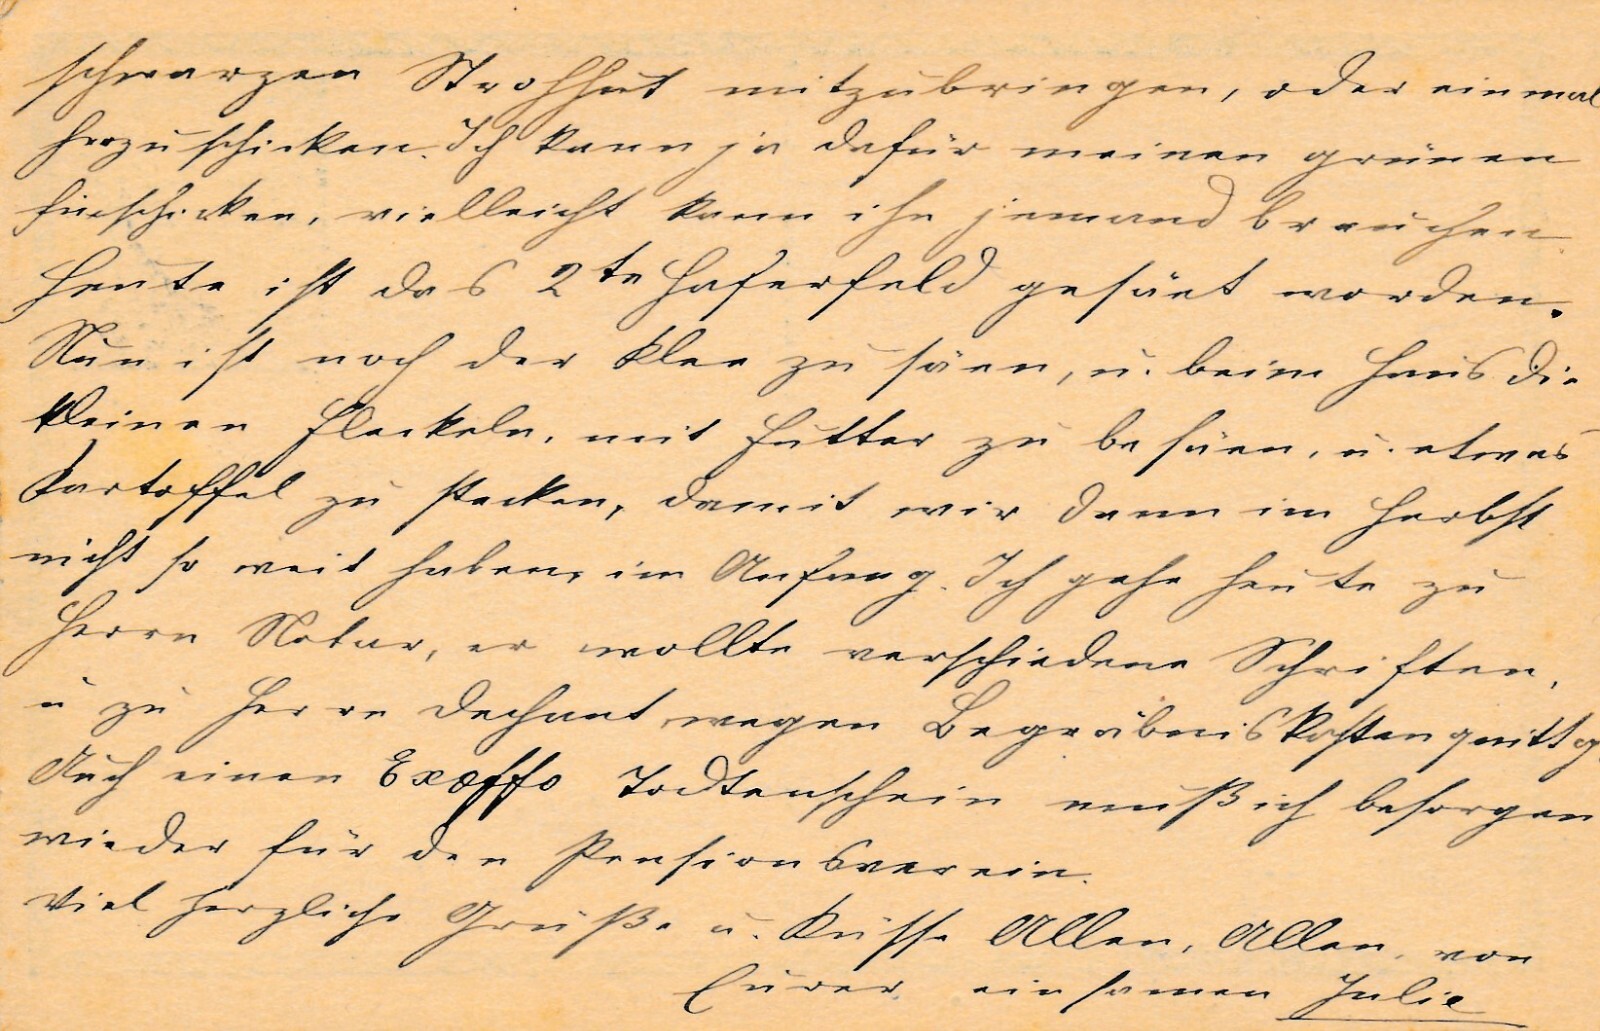 schwarzen Strohhut mitzubringen, oder einmal
herzuschicken. Ich kann ja dafür meinen grünen
hinschicken, vielleicht kann ihn jemand brauchen.
Heute ist das 2te Haferfeld gesäet worden.
Nun ist noch der Klee zu säen, u. beim Haus die
kleinen Fleckeln, mit Futter zu besäen, u. etwas
Kartoffel zu stecken, damit wir dann im Herbst
nicht so weit haben, im Anfang. Ich gehe heute zu
Herrn Notar, er wollte verschiedene Schriften,
u zu Herrn Dechant wegen Begräbniskostenquittg.
Auch einen Exoffo Todtenschein muß ich besorgen
wieder für den Pensionsverein.
Viel herzliche Grüße u. Küsse Allen, Allen, von
Eurer einsamen Julie